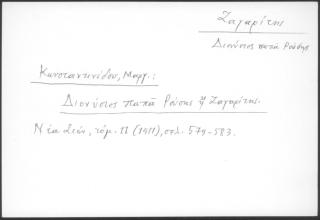 Ζαγαρίτης
Διονύσιος παπά Ρούσης
Κωνσταντινίδου, Μαργ.:
Διονύσιος παπά Ρούσης ἤ Ζαγαρίτης.
Νέα Σιών, τόμ. 11 (1911), σελ. 579-583.